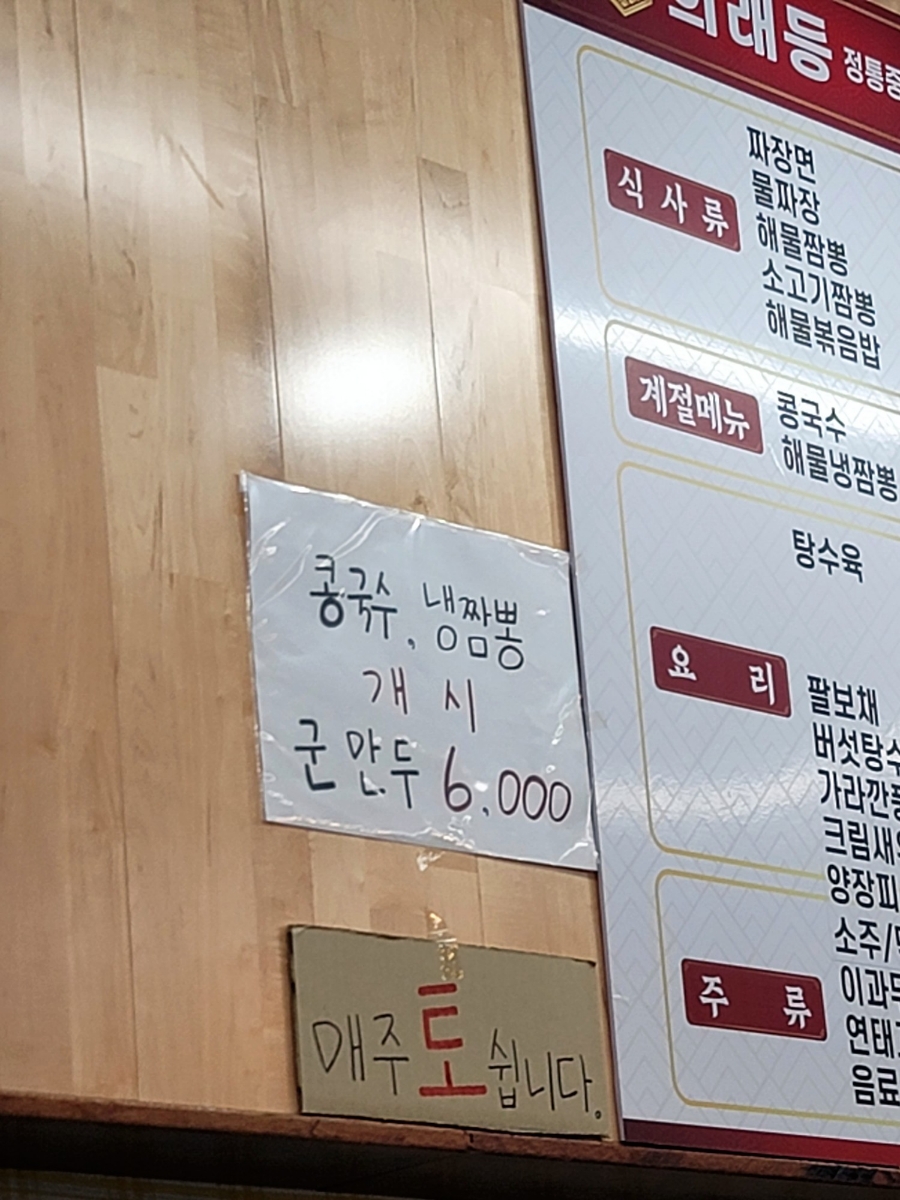 콩국수, 냉짬뽕
개시
군만두 6,000
매주 토 쉽니다.
희래등 정통중
식사류
짜장면
물짜장
해물짬뽕
소고기짬뽕
해물볶음밥
계절메뉴
콩국수
해물냉짬뽕
요리
탕수육
팔보채
버섯탕수
가라깐풍
크림새우
양장피
주류
소주/
이과두
연태고
음료